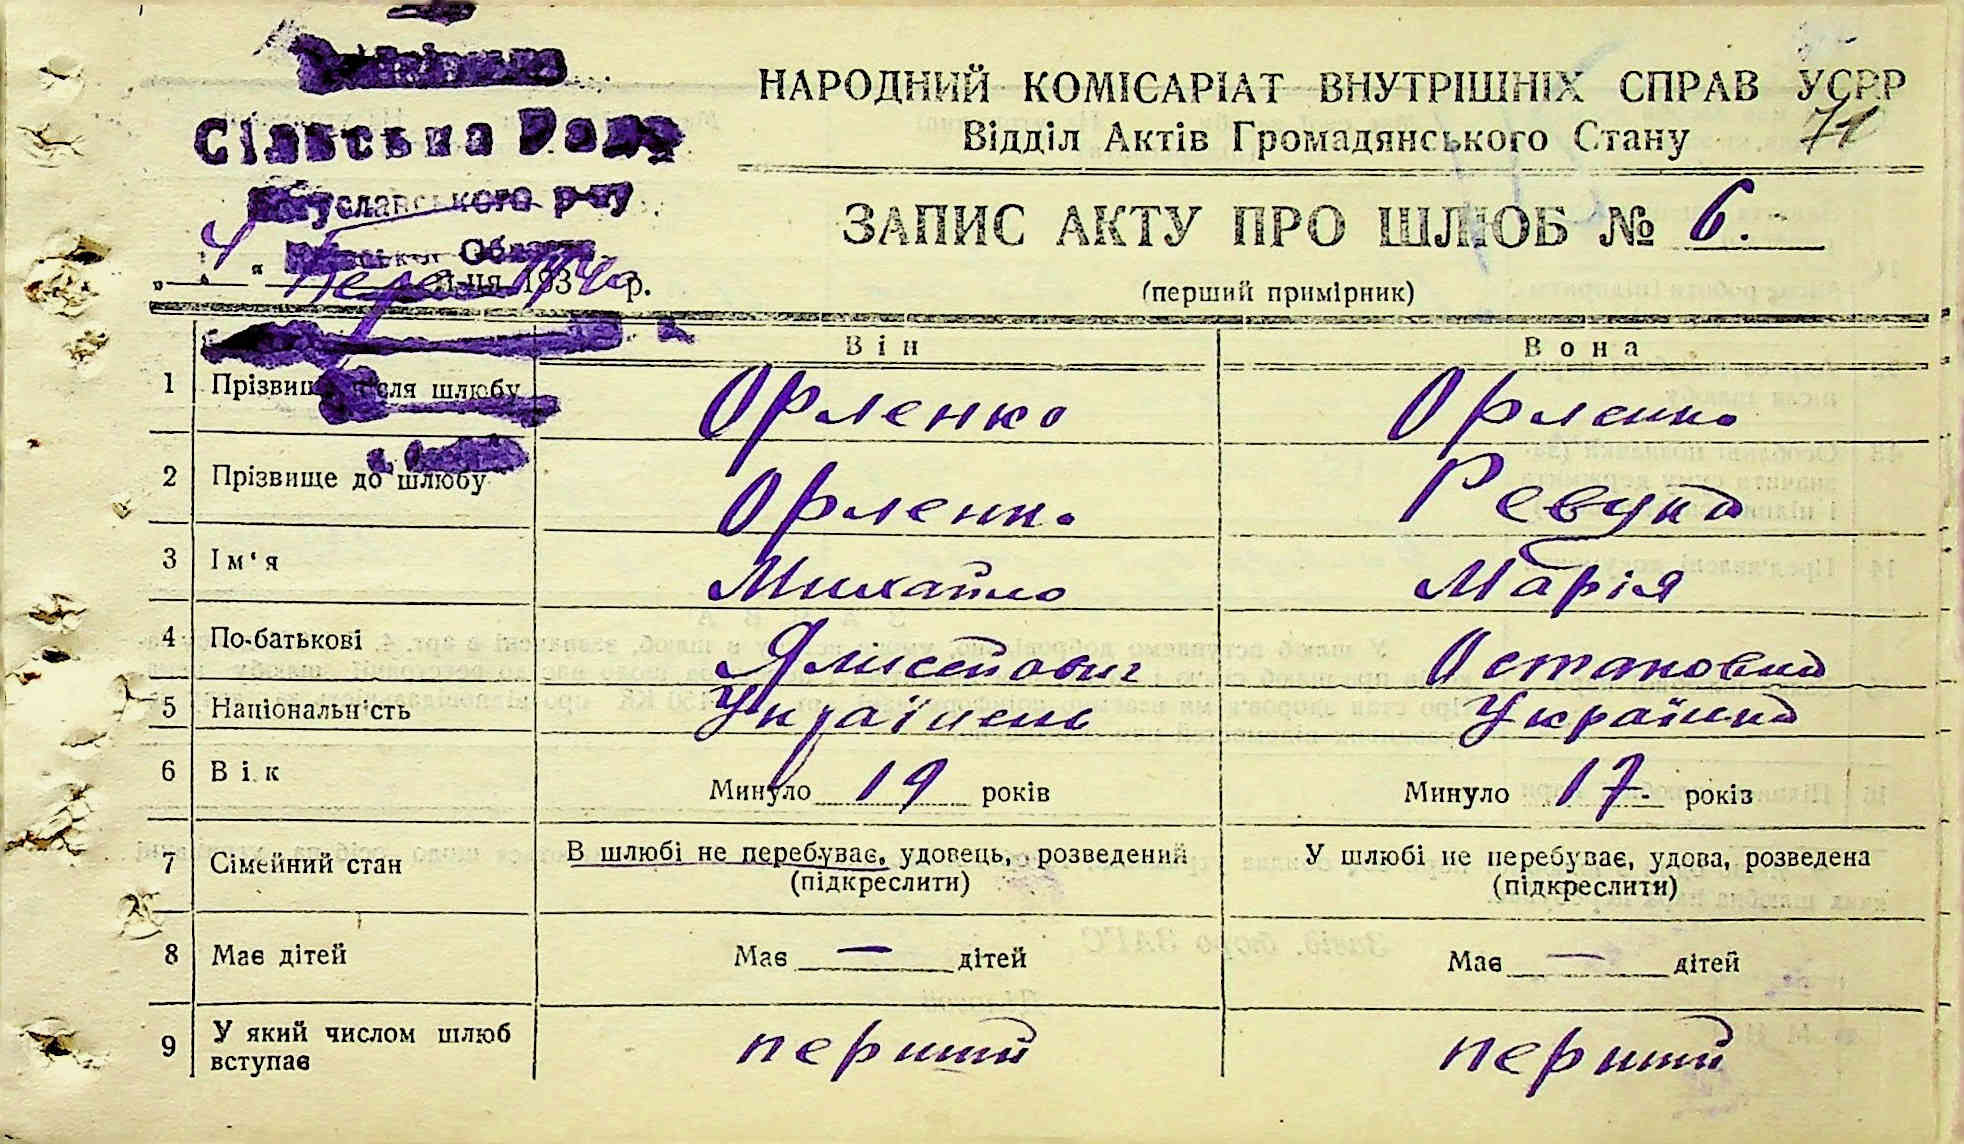 Сілвська Рада
Богуславського р-ну
Області
НАРОДНИЙ КОМІСАРІАТ ВНУТРІШНІХ СПРАВ УСРР
Відділ Актів Громадянського Стану 71
ЗАПИС АКТУ ПРО ШЛЮБ № 6.
(перший примірник)
„ 4 “ 193 р.
Він Вона
1 Прізвище після шлюбу Орленко Орленко
2 Прізвище до шлюбу Орленко Ревука
3 Ім'я Михайло Марія
4 По-батькові Остаповна
5 Національність Українець Українка
6 Вік Минуло 19 років Минуло 17 років
7 Сімейний стан В шлюбі не перебуває, удовець, розведений У шлюбі не перебуває, удова, розведена
(підкреслити) (підкреслити)
8 Має дітей Має — дітей Має — дітей
9 У який числом шлюб
вступає перший перший